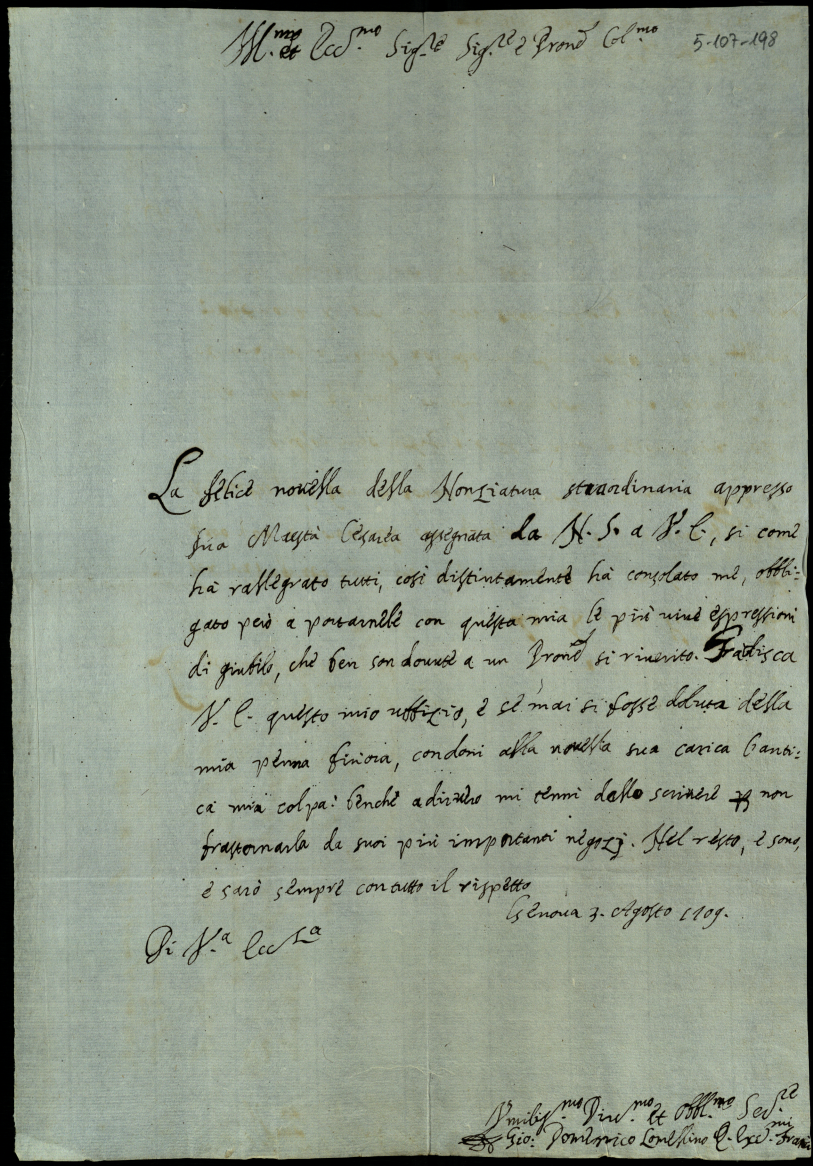 Ill.mo et Ecc.mo Sig.re Sig.re e Prone Col.mo
5-107-198
La felice novella della Nonziatura straordinaria appresso
sua Maestà Cesarea assegnata da N. S. a V. E., si come
hà rallegrato tutti, così distintamente hà consolato me, obbli=
gato però a portarnele con questa mia le più vive espressioni
di giubilo, che ben son dovute a un Prone si riverito. Gradisca
V. E. questo mio uffizio, e se mai si fosse doluta della
mia penna finora, condoni alla novella sua carica l'anti=
ca mia colpa: benche a dir vero mi tenni dallo scrivere p non
frastornarla da suoi più importanti negozj. Nel resto, e sono,
e sarò sempre con tutto il rispetto
Genova 3. Agosto 1709.
Di V.a Ecc.za
Vmiliss.mo Div.mo et Obbl.mo Ser.re
Gio: Domenico Q.